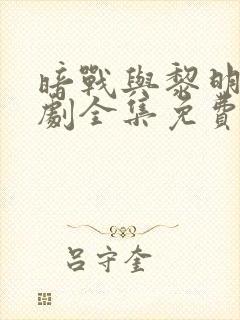 暗戰與黎明
劇全集免費
呂守奎